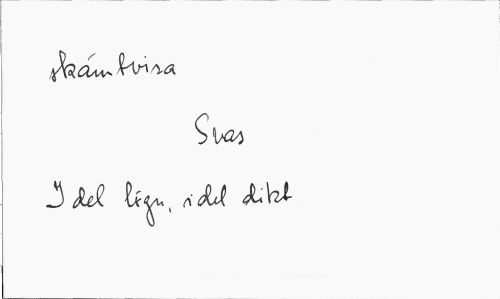 skämtvisa
Svas
Idel lögn, idel dikt